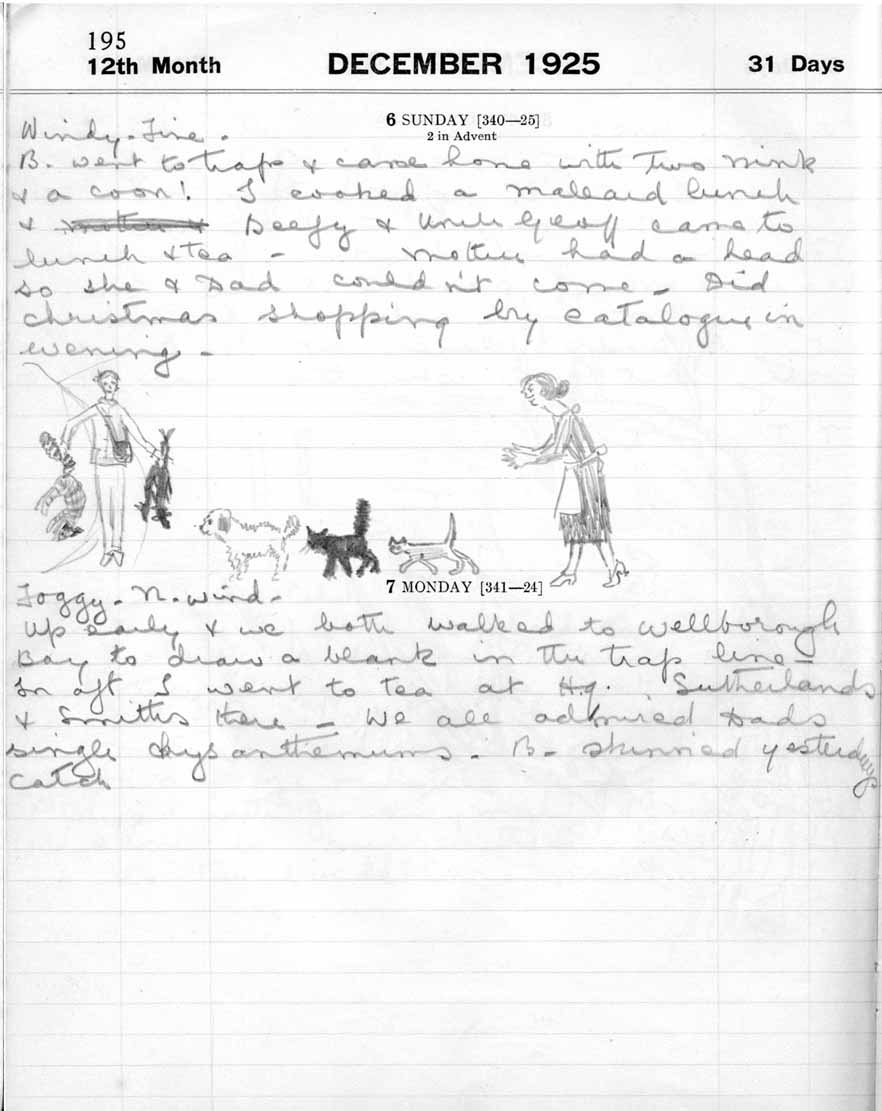 195
12th Month DECEMBER 1925 31 Days
6 SUNDAY [340—25]
2 in Advent
Windy - Fine -
B. went to traps & came home with Two mink
& a coon! I cooked a mallard lunch
& Beefy & Uncle Geoff came to
lunch & tea - Mother had a head
so she & Dad couldn't come - Did
christmas shopping by catalogue in
evening -
7 MONDAY [341—24]
Foggy - N. wind -
Up early & we both walked to Wellborough
Bay to draw a blank in the trap line -
In aft I went to tea at Hq. Sutherlands
& Smiths there - We all admired Dads
single chrysanthemums - B - skinned yesterdays
catch